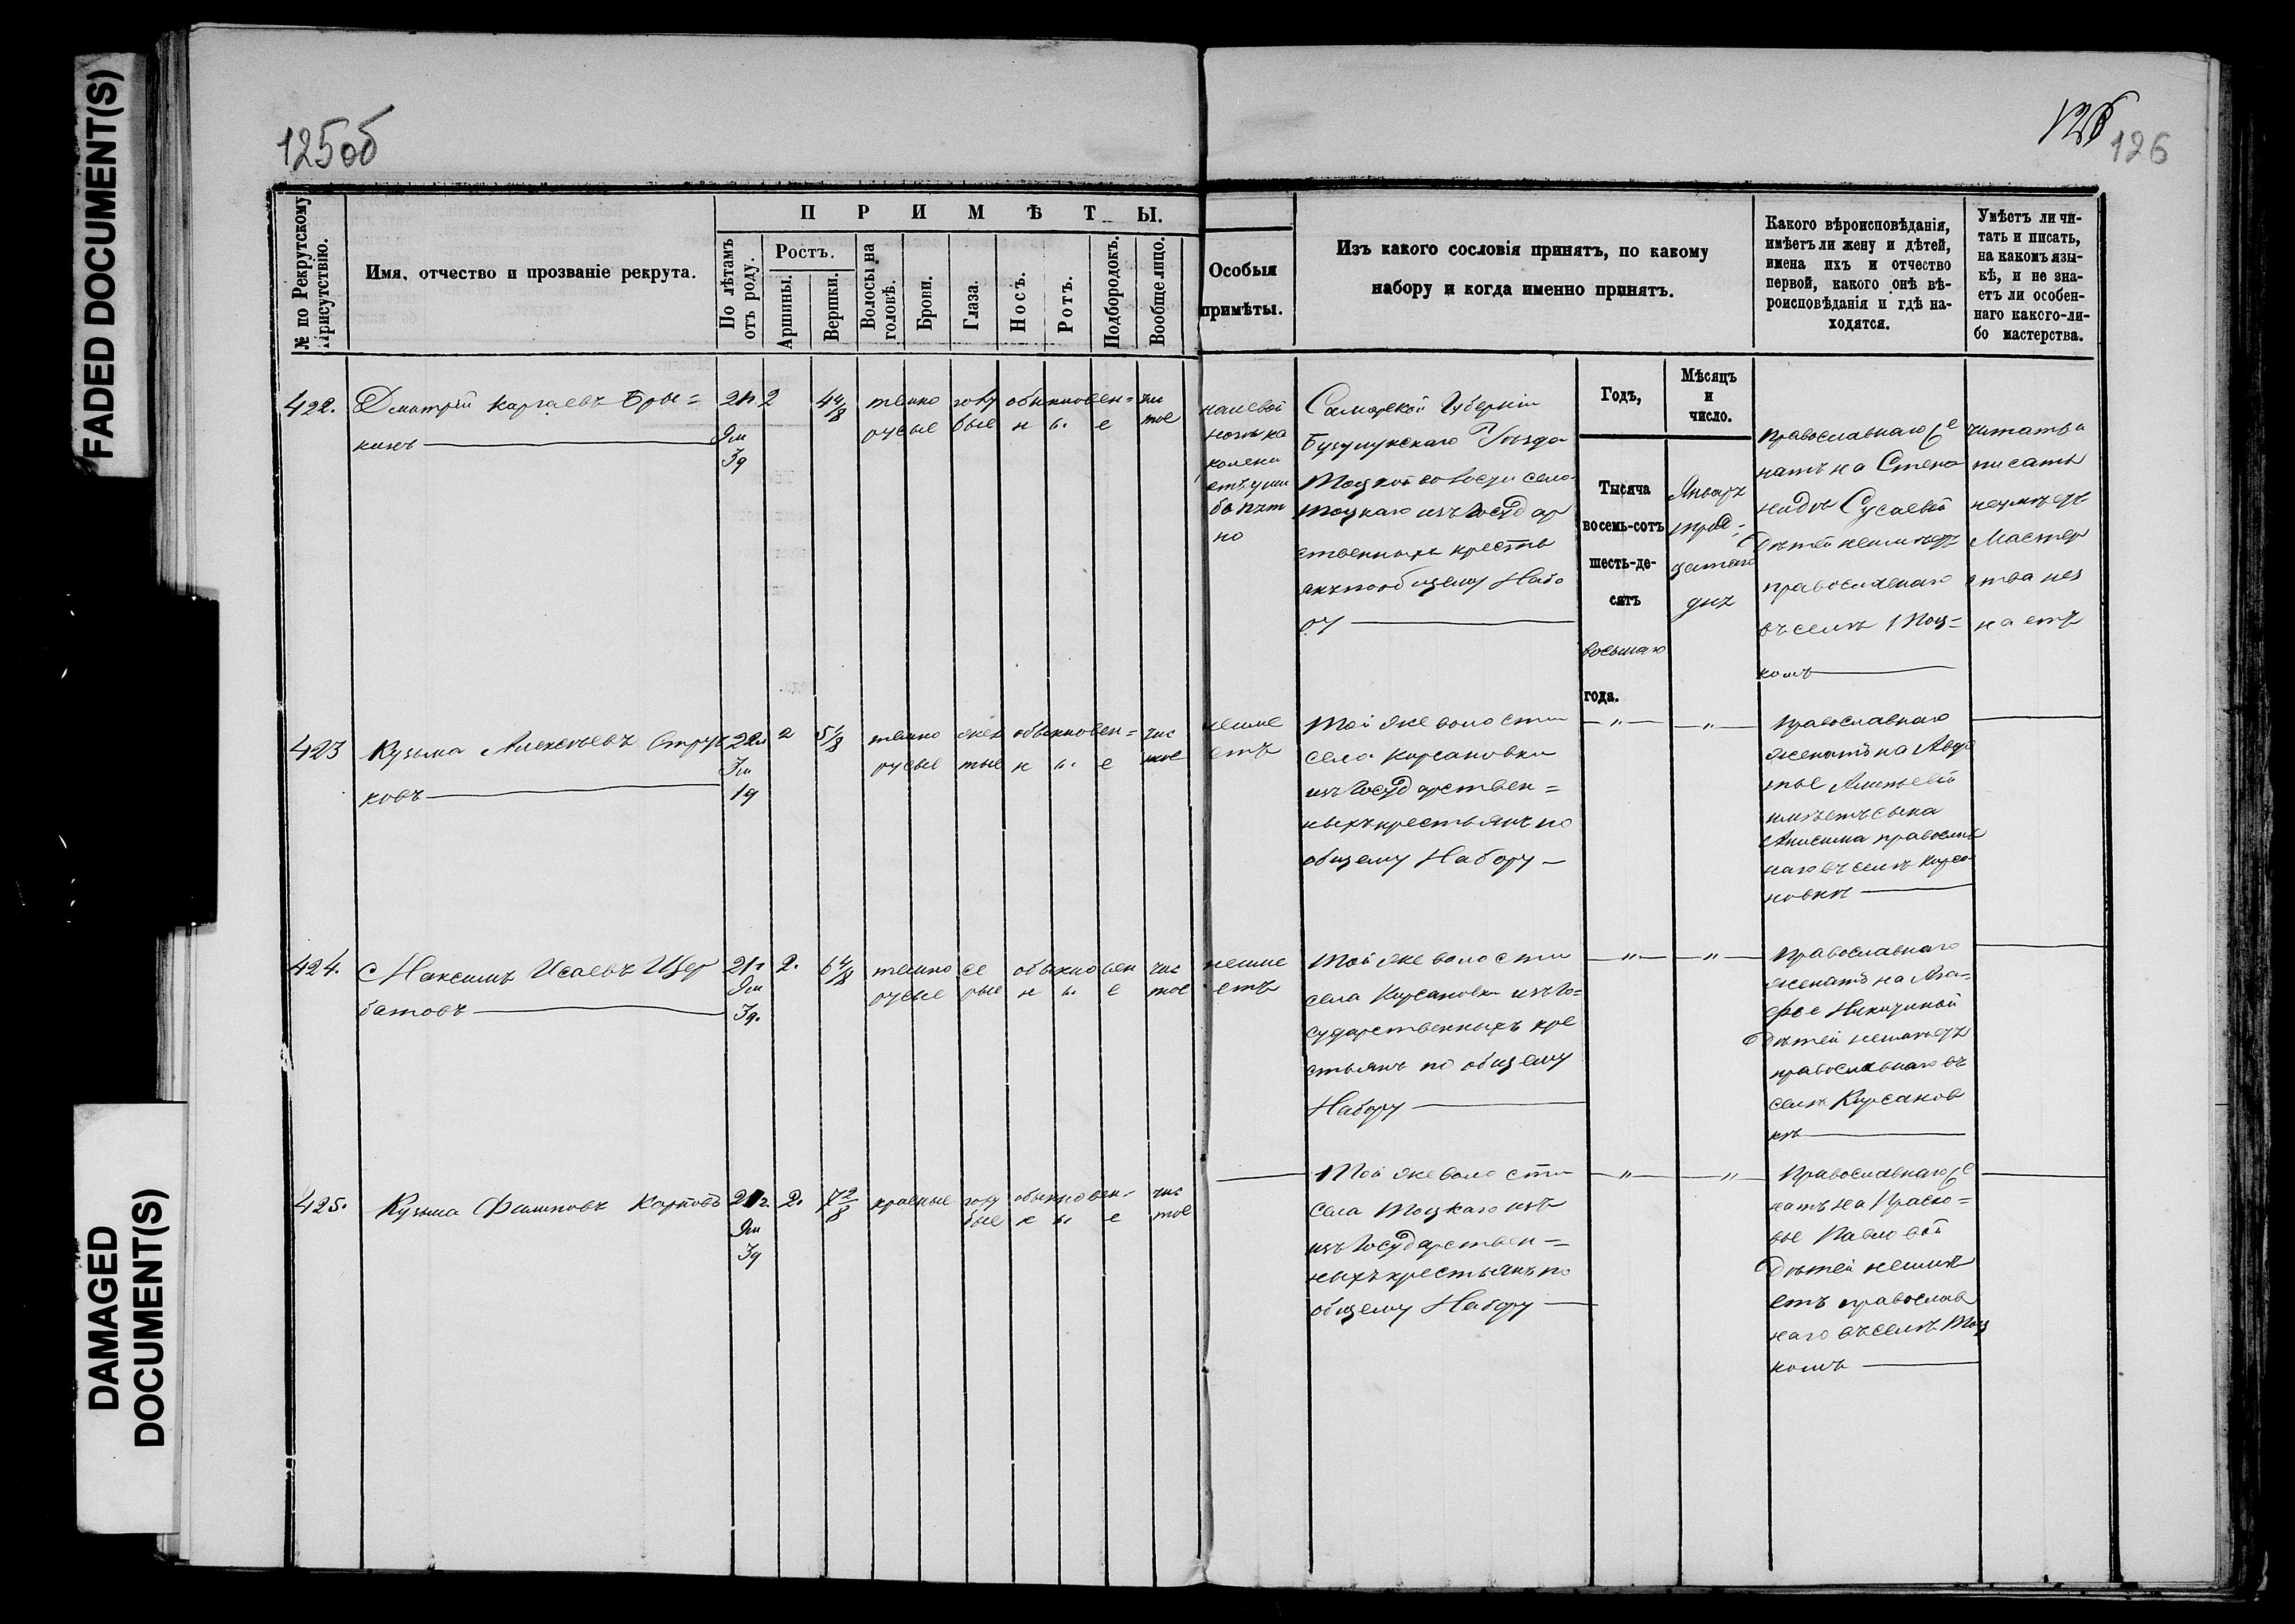 FADED DOCUMENT(S)
DAMAGED
DOCUMENT(S)
125об
126
126
№ по Рекрутскому Присутствію.
Имя, отчество и прозваніе рекрута.
ПРИМѢТЫ.
По лѣтамъ отъ роду.
Ростъ.
Аршины.
Вершки.
Волосы на головѣ.
Брови.
Глаза.
Носъ.
Ротъ.
Подбородокъ.
Вообще лицо.
Особыя
примѣты.
Изъ какого сословія принятъ, по какому
набору и когда именно принятъ.
Какого вѣроисповѣданія,
имѣетъ ли жену и дѣтей,
имена ихъ и отчество
первой, какого онѣ вѣ-
роисповѣданія и гдѣ на-
ходятся.
Умѣетъ ли чи-
тать и писать,
на какомъ язы-
кѣ, и не зна-
етъ ли особен-
наго какого-ли-
бо мастерства.
Годъ,
Мѣсяцъ
и
число.
422.
Дмитрій
кинъ
21г
9м
3д
2
4 4/8
темно
русые
голу
бые
обыкновен=
н ы е
чис
тое
на левой
ноги
колена
но
Самарской Губерніи
Бузулукскаго Уѣзда
Тоцкой волости села
Тоцкаго изъ Государ
ственныхъ кресть
янъ по общему Набо
ру
Тысяча
восемь-сотъ
шесть-де-
сятъ
восьмаго
года.
Январ
трид-
цатаго
дня
Православнаго же
натъ на Степа
нидѣ Сусаевой
Дѣтей неимѣетъ
православнаго
въ селѣ Тоц=
комъ
читать и
писать
неумѣетъ
Мастер
ства нез
наетъ
423
Кузьма Алексѣевъ Струч
ковъ
22г
3м
1д
2
5 1/8
темно
русые
жел
тые
обыкновен=
н ы е
чис
тое
неиме
етъ
Той же волости
села Кирсановки
изъ Государствен=
ныхъ крестьянъ по
общему Набору
— „ —
— „ —
Православнаго
женатъ на Авдо
тье
имѣетъ сына
Анисима православ
наго въ селѣ Кирса
новкѣ
424.
Максимъ Исаевъ Щер
батовъ
21г
9м
3д.
2.
6 4/8
темно
русые
се
рые
обыкновен
н ы е
чис
тое
неиме
етъ
Той же волости
села Кирсановки изъ Го=
сударственныхъ кре
стьянъ по общему
Набору
— „ —
— „ —
Православнаго
женатъ на Ага-
фье Никитиной
Дѣтей неимѣетъ
православнаго въ
селѣ Кирсанов
кѣ
425.
Кузьма Филиповъ Карповъ
21г.
9м
3д
2.
7 2/8
красные
голу
бые
обыкновен-
н ы е
чис
тое
Той же волости
села Тоцкаго изъ
изъ Государствен=
ныхъ крестьянъ по
общему Набору
— „ —
— „ —
Православнаго же
натъ на Праско=
вье Павловой
Дѣтей неимѣ
етъ православ
наго въ селѣ Тоц
комъ